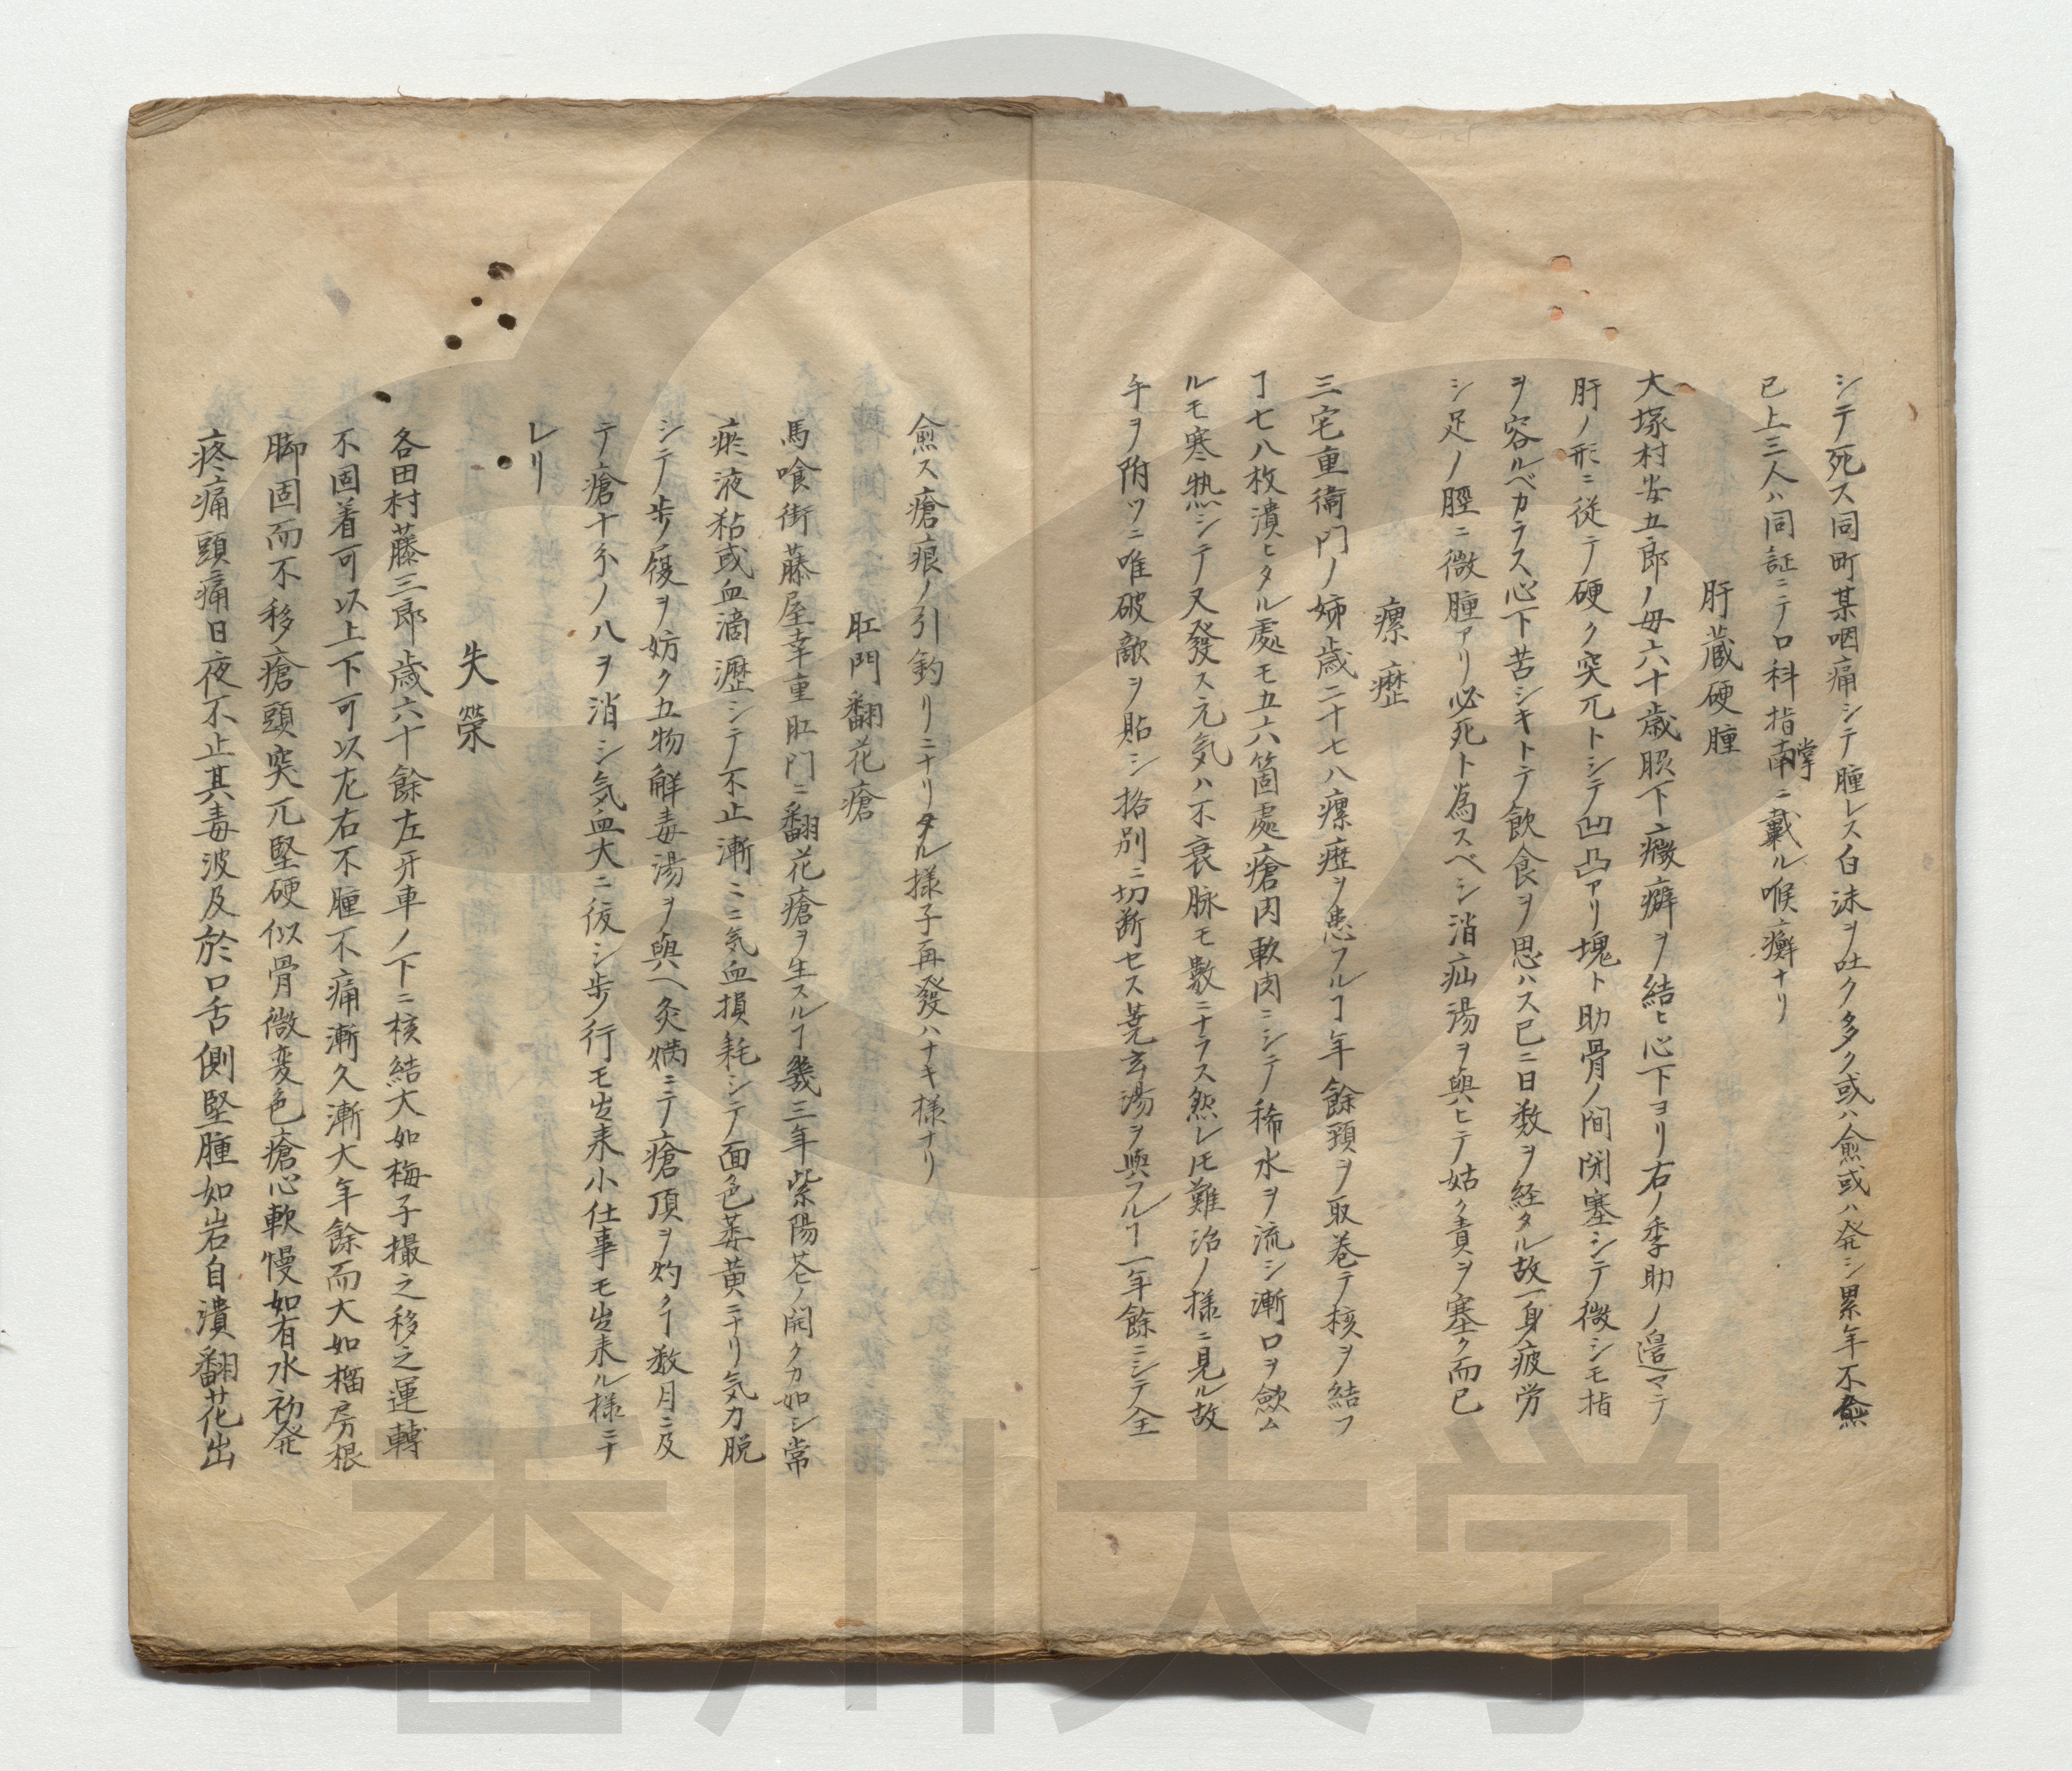 シテ死ス同町某咽痛シテ腫レス白沫ヲ吐ク多ク或ハ愈或ハ発シ累年不愈
已上三人ハ同証ニテ口科指掌南ニ載ル喉癬ナリ
肝蔵硬腫
大塚村安五郎ノ毋六十歳脵下癥癖ヲ結ヒ心下ヨリ右ノ季助ノ邉マテ
肝ノ形ニ従テ硬ク突兀トシテ凹凸アリ塊ト助骨ノ間閉塞シテ微シモ指
ヲ容ルベカラス心下苦シキトテ飲食ヲ思ハス已ニ日数ヲ経タル故一身疲労
シ足ノ脛ニ微腫アリ必死ト為スベシ消疝湯ヲ與ヒテ姑ク責ヲ塞ク而已
瘰癧
三宅重衛門ノ姉歳二十七八瘰癧ヲ患フルヿ年餘頚ヲ取巻テ核ヲ結フ
ヿ七八枚潰ヒタル處モ五六箇處瘡肉軟肉ニシテ稀水ヲ流シ漸口ヲ斂ム
ルモ寒熱シテ又發ス元気ハ不衰脉モ數ニナラス然レ𪜈難治ノ様ニ見ル故
午ヲ附ツニ唯破敵ヲ貼シ挌別ニ切断セス莞玄湯ヲ與フルヿ一年餘ニシテ全
愈ス瘡痕ノ引釣リニナリタル様子再發ハナキ様ナリ
肛門翻花瘡
馬喰街藤屋幸重肛門ニ翻花瘡ヲ生スルヿ幾三年紫陽花ノ開クカ如シ常
瘀液粘或血滴瀝シテ不止漸ニニ気血損耗シテ面色萎黄ニナリ気力脱
シテ歩履ヲ妨ク五物解毒湯ヲ與ヘ灸焫ニテ瘡頂ヲ灼クヿ数月ニ及
テ瘡十分ノ八ヲ消シ気血大ニ復シ歩行モ出来小仕事モ出来ル様ニナ
レリ
失榮
各田村藤三郎歳六十餘左牙車ノ下ニ核結大如梅子撮之移之運轉
不固着可以上下可以左右不腫不痛漸久漸大年餘而大如榴房根
脚固而不移瘡頭突兀堅硬似骨微変色瘡心軟慢如有水初発
疼痛頭痛日夜不止其毒波及於口舌側堅腫如岩自潰翻花出
香川大学